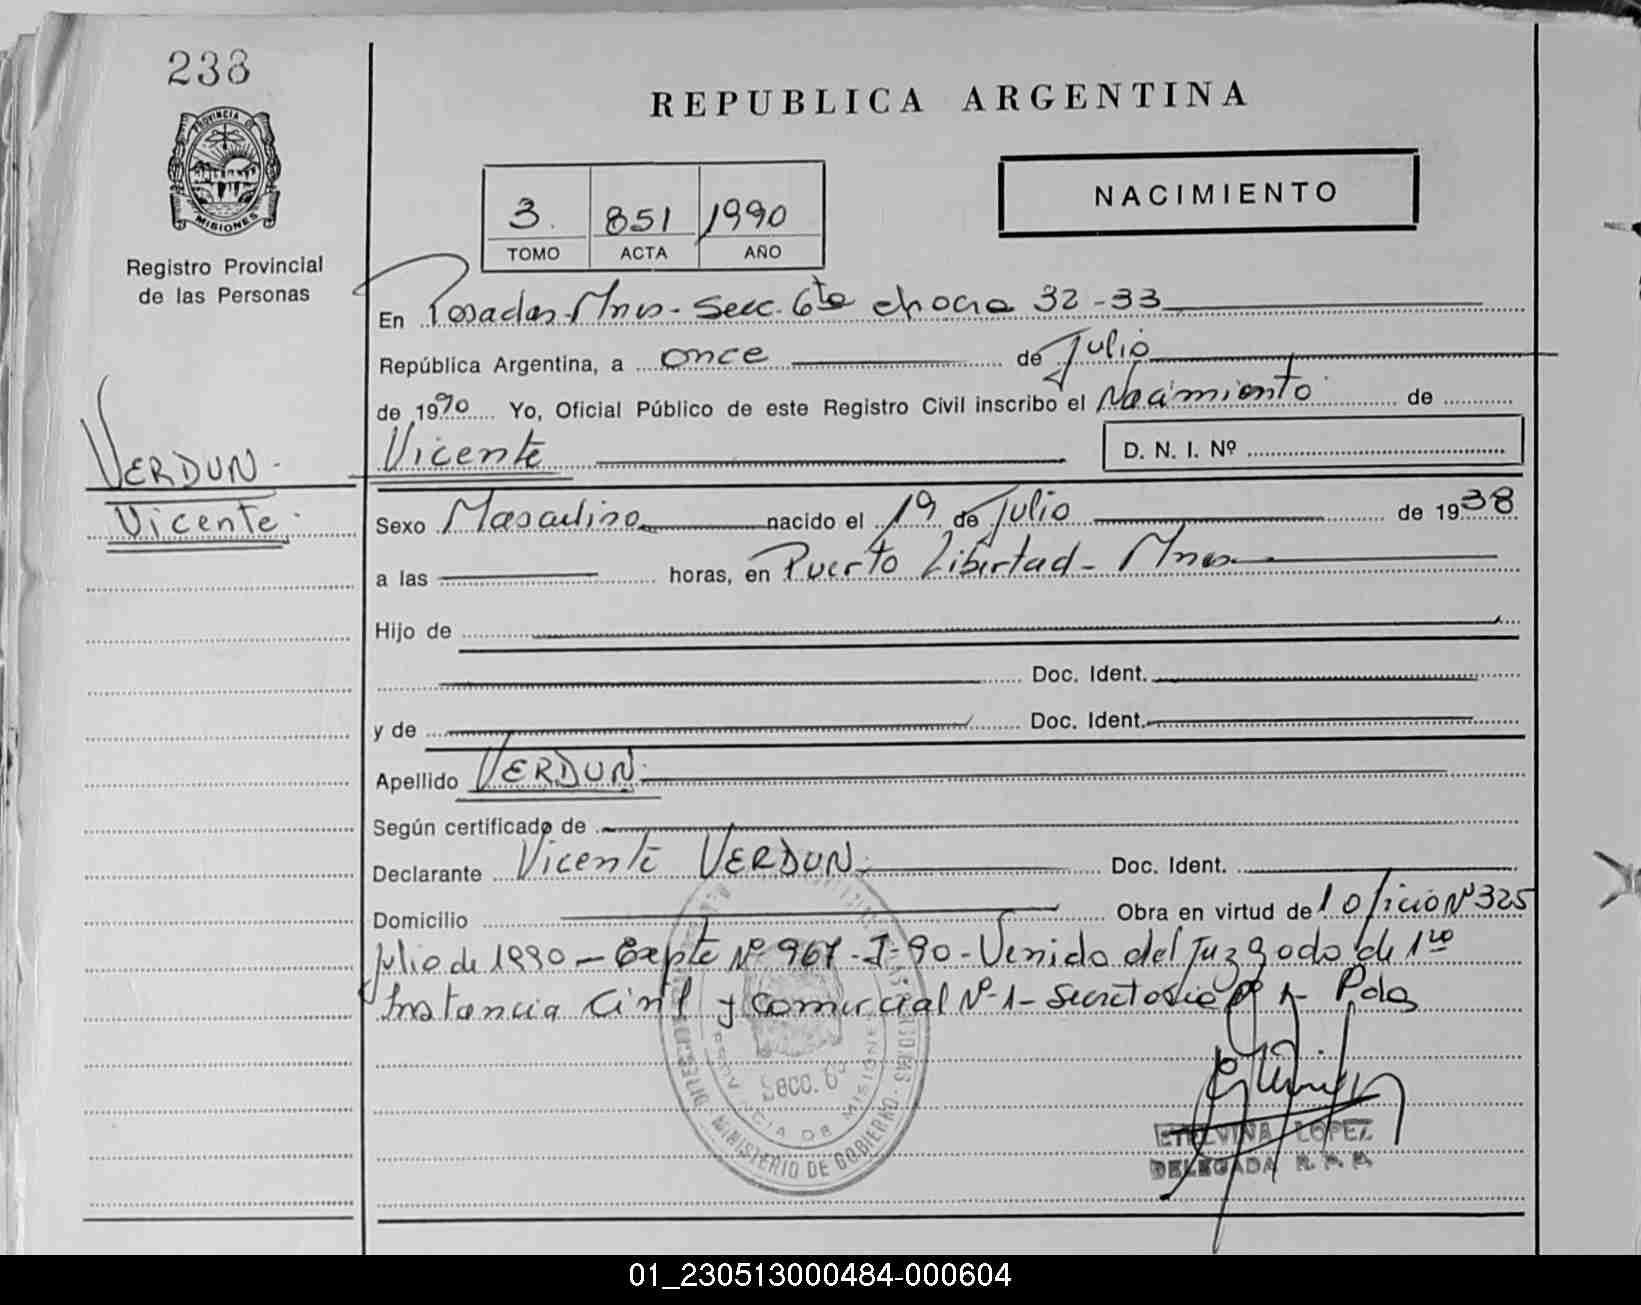 238
PROVINCIA DE
MISIONES
Registro Provincial
de las Personas
REPUBLICA ARGENTINA
3. 851 1990
TOMO ACTA AÑO
NACIMIENTO
En Posadas-Mnes-Secc. 6ta chacra 32-33
República Argentina, a once de Julio
de 1990 Yo, Oficial Público de este Registro Civil inscribo el Nacimiento de
Vicente D. N. I. Nº
VERDUN-
Vicente-
Sexo Masculino nacido el 19 de Julio de 1938
a las horas, en Puerto Libertad- Mnes
Hijo de
Doc. Ident.
y de Doc. Ident.
Apellido VERDUN-
Según certificado de
Declarante Vicente VERDUN- Doc. Ident.
Domicilio Obra en virtud de Oficio Nº 325
Julio de 1990 - Expte Nº 967-J-90-Venido del Juzgado de 1ra
Instancia Civil y Comercial Nº-1-Secretaria Nº 1- Pdas
SECC. 6ª
PROVINCIA DE MISIONES
MINISTERIO DE GOBIERNO
ETELVINA LOPEZ
DELEGADA R. P. P.
01_230513000484-000604